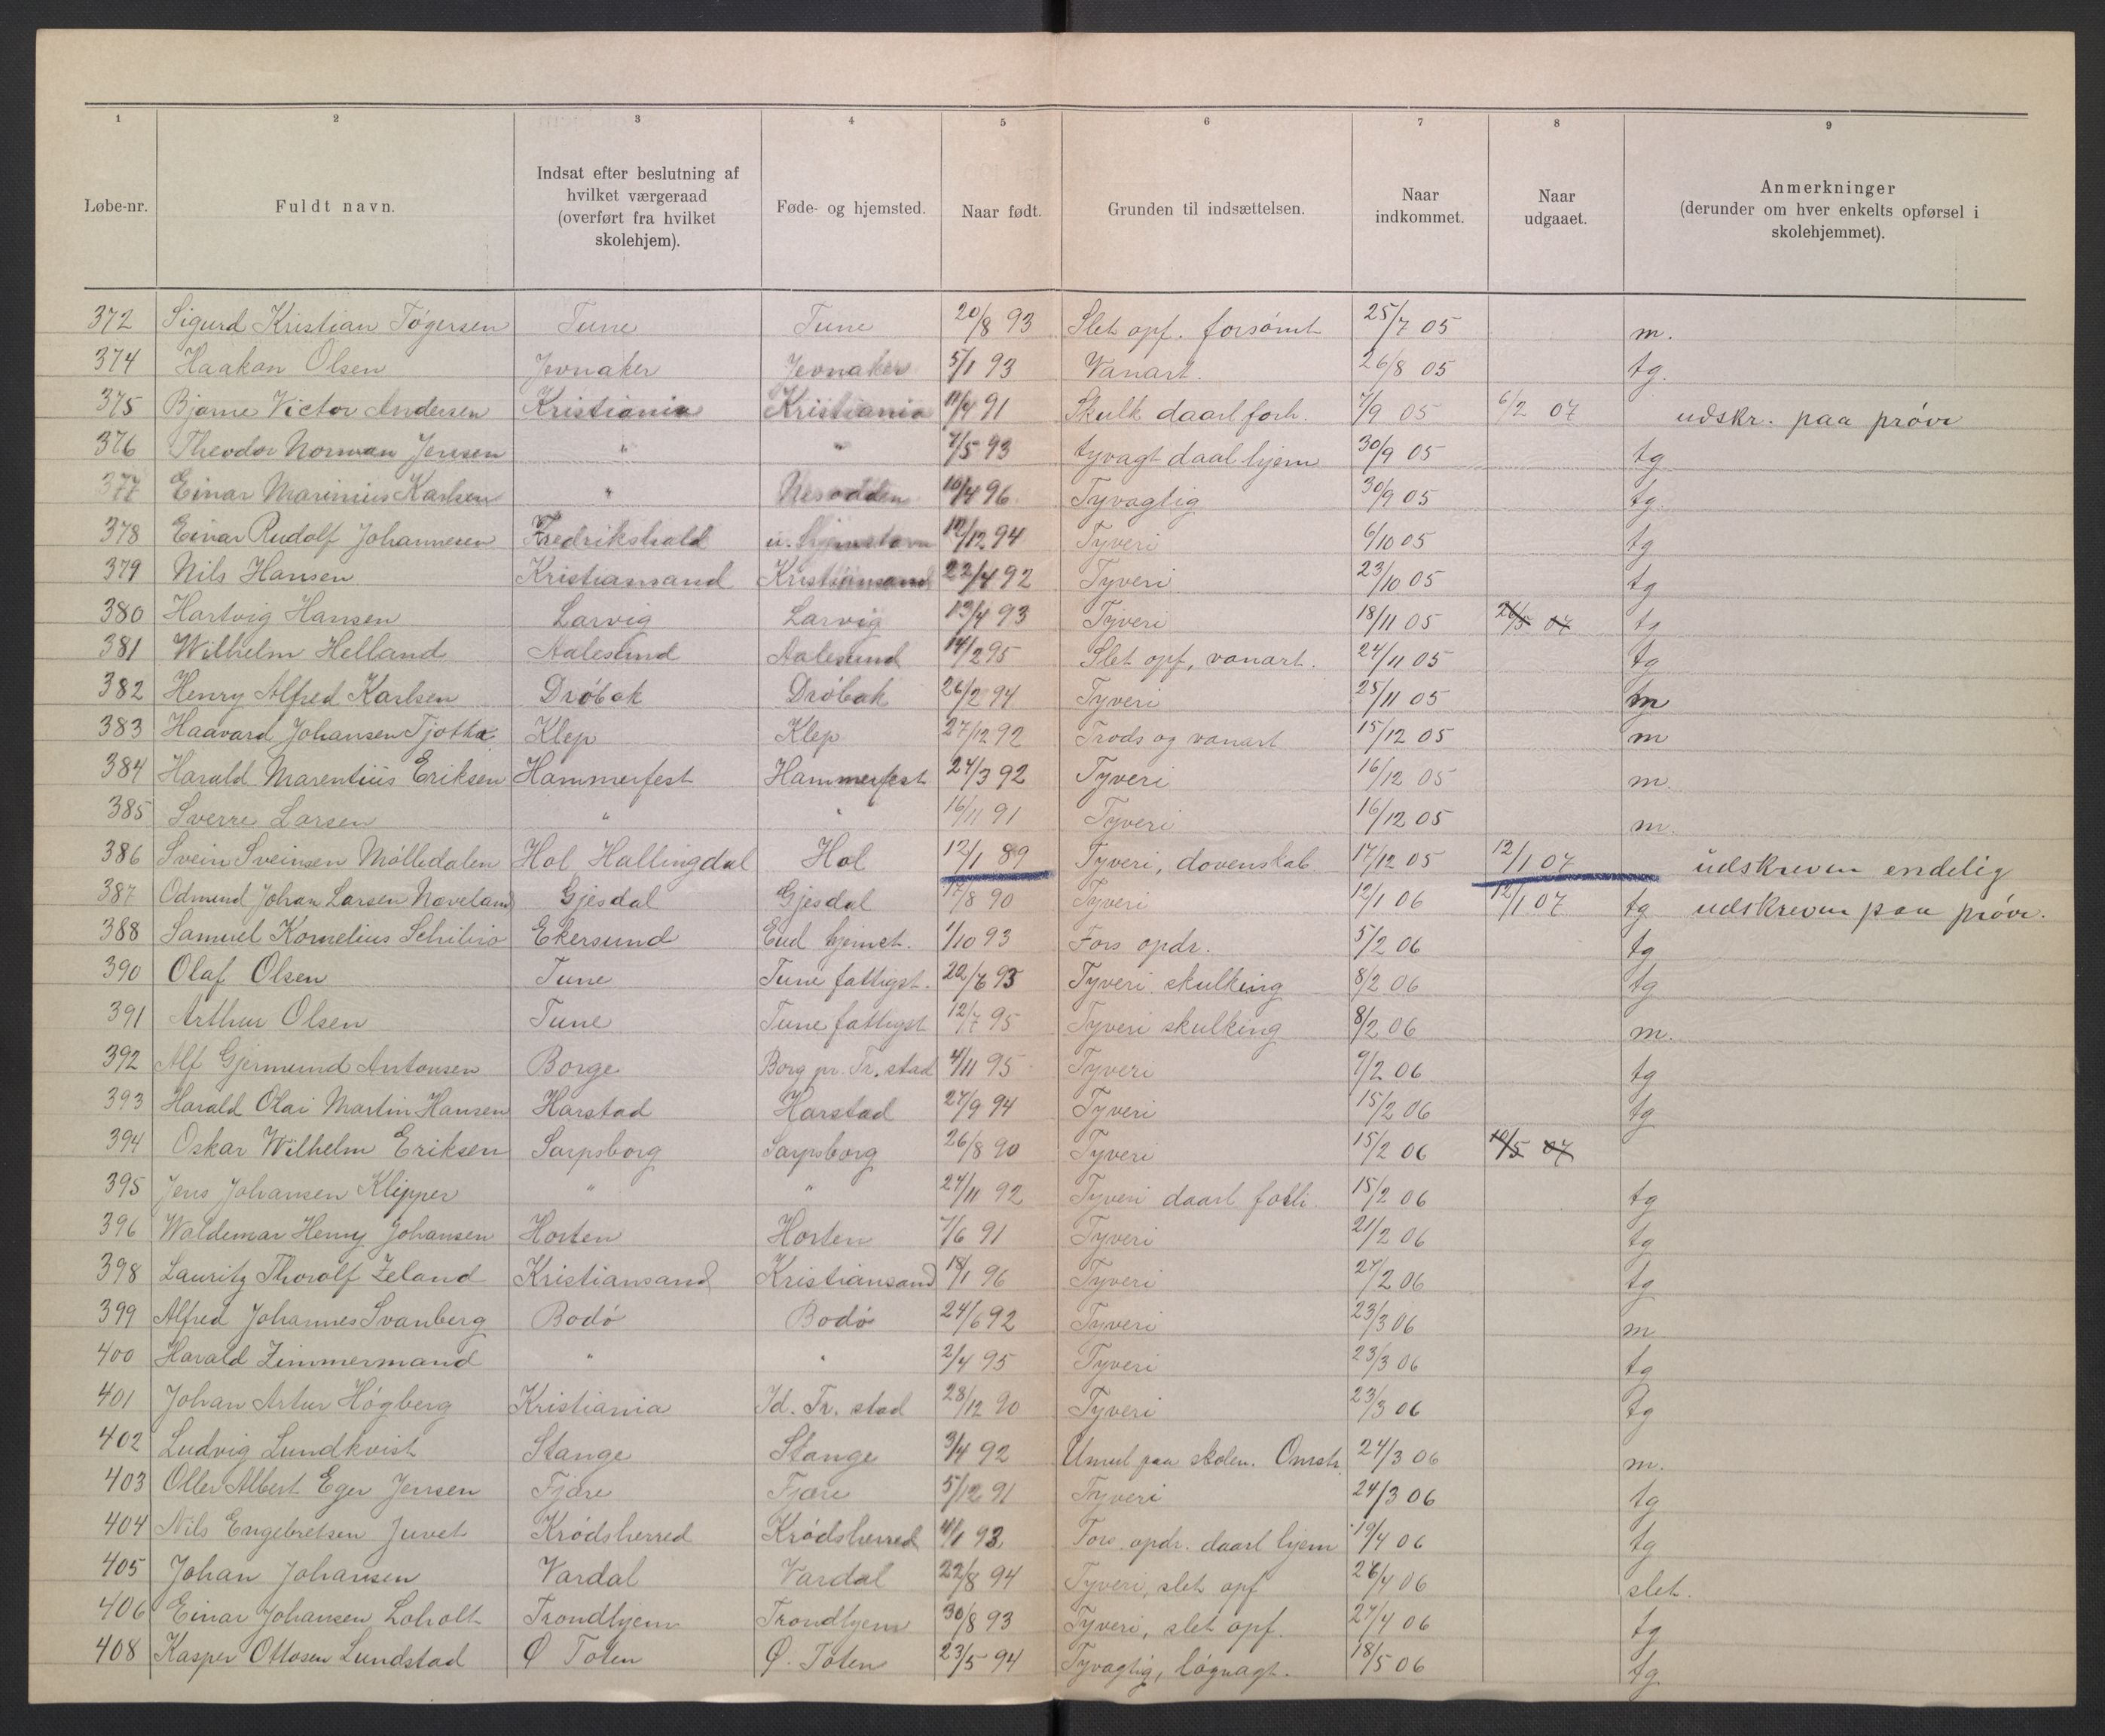 1 2 3 4 5 6 7 8 9
Løbe-nr. Fuldt navn. Indsat efter beslutning af hvilket værgeraad (overført fra hvilket skolehjem). Føde- og hjemsted. Naar født. Grunden til indsættelsen. Naar indkommet. Naar udgaaet. Anmerkninger (derunder om hver enkelts opførsel i skolehjemmet).
372 Sigurd Kristian Tøgersen Tune Tune 20/8 93 Slet opf. forsømt 25/7 05 m.
374 Haakon Olsen Jevnaker Jevnaker 5/1 93 Vanart. 26/8 05 tg.
375 Bjarne Victor Andersen Kristiania Kristiania 11/4 91 Skulk daarl forh. 7/9 05 6/2 07 udskr. paa prøve
376 Theodor Norman Jensen " " 7/5 93 tyvagt daal hjem 30/9 05 tg
377 Einar Marinius Karlsen " Nesodden 10/4 96 Tyvagtig 30/9 05 tg.
378 Einar Rudolf Johannesen Fredrikshald u. hjemstavn 12/12 94 Tyveri 6/10 05 tg
379 Nils Hansen Kristiansand Kristiansand 22/4 92 Tyveri 23/10 05 tg
380 Hartvig Hansen Larvig Larvig 13/4 93 Tyveri 18/11 05 26/5 07 tg
381 Wilhelm Helland Aalesund Aalesund 14/2 95 Slet opf, vanart. 24/11 05 tg
382 Henry Alfred Karlsen Drøbak Drøbak 26/2 94 Tyveri 25/11 05 m
383 Haavard Johansen Tjøtta Klep Klep 27/12 92 Trods og vanart 15/12 05 m
384 Harald Marentius Eriksen Hammerfest Hammerfest 24/3 92 Tyveri 16/12 05 m.
385 Sverre Larsen " " 16/11 91 Tyveri 16/12 05 m.
386 Svein Sveinsen Mølledalen Hol Hallingdal Hol 12/1 89 Tyveri, dovenskab 17/12 05 12/1 07 udskreven endelig
387 Odmund Johan Larsen Naveland Gjesdal Gjesdal 17/8 90 Tyveri 12/1 06 12/1 07 tg udskreven paa prøve.
388 Samuel Kornelius Ekersund 1/10 93 Fors opdr. 5/2 06 tg
390 Olaf Olsen Tune Tune fattigst. 22/6 93 Tyveri skulking 8/2 06 tg
391 Arthur Olsen Tune Tune fattigst 12/7 95 Tyveri skulking 8/2 06 m.
392 Alf Gjermund Antonsen Borge Borg pr. Fr. stad 4/11 95 Tyveri 9/2 06 tg
393 Harald Olai Martin Hansen Harstad Harstad 27/9 94 Tyveri 15/2 06 tg
394 Oskar Wilhelm Eriksen Sarpsborg Sarpsborg 26/8 90 Tyveri 15/2 06 10/5 07
395 Jens Johansen Klipper " " 27/11 92 Tyveri daarl forh. 15/2 06 tg
396 Waldemar Henry Johansen Horten Horten 7/6 91 Tyveri 21/2 06 tg
398 Lauritz Thorolf Zeland Kristiansand Kristiansand 18/1 96 Tyveri 27/2 06 tg
399 Alfred Johannes Svanberg Bodø Bodø 24/6 92 Tyveri 23/3 06 m
400 Harald Zimmermand " " 2/4 95 Tyveri 23/3 06 tg
401 Johan Artur Høgberg Kristiania Id. Fr. stad 28/12 90 Tyveri 23/3 06 tg
402 Ludvig Lundkvist Stange Stange 3/4 92 paa skolen. Omstr. 24/3 06 m.
403 Oller Albert Eger Jensen Fjære Fjære 5/12 91 Tyveri 24/3 06 tg
404 Nils Engebretsen Juvet Krødsherred Krødsherred 4/1 93 Fors. opdr. daarl hjem 19/4 06 tg
405 Johan Johansen Vardal Vardal 22/8 94 Tyveri, slet opf 26/4 06 slet.
406 Einar Johansen Loholt Trondhjem Trondhjem 30/8 93 Tyveri, slet opf. 27/4 06 tg
408 Kasper Ottosen Lundstad Ø Toten Ø. Toten 23/5 94 Tyvagtig, løgnagt. 18/5 06 tg